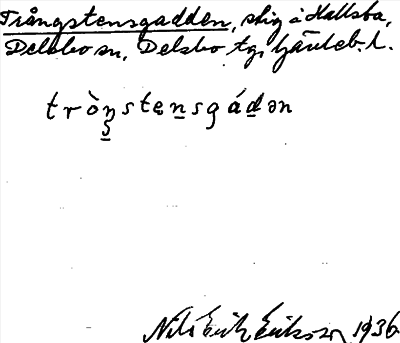 Trångstensgadden, skig å Hallsbo,
Delsbo sn, Delsbo tg, Gävleb. l.
tròŋstensgádən
Nils Erik Erikson 1936